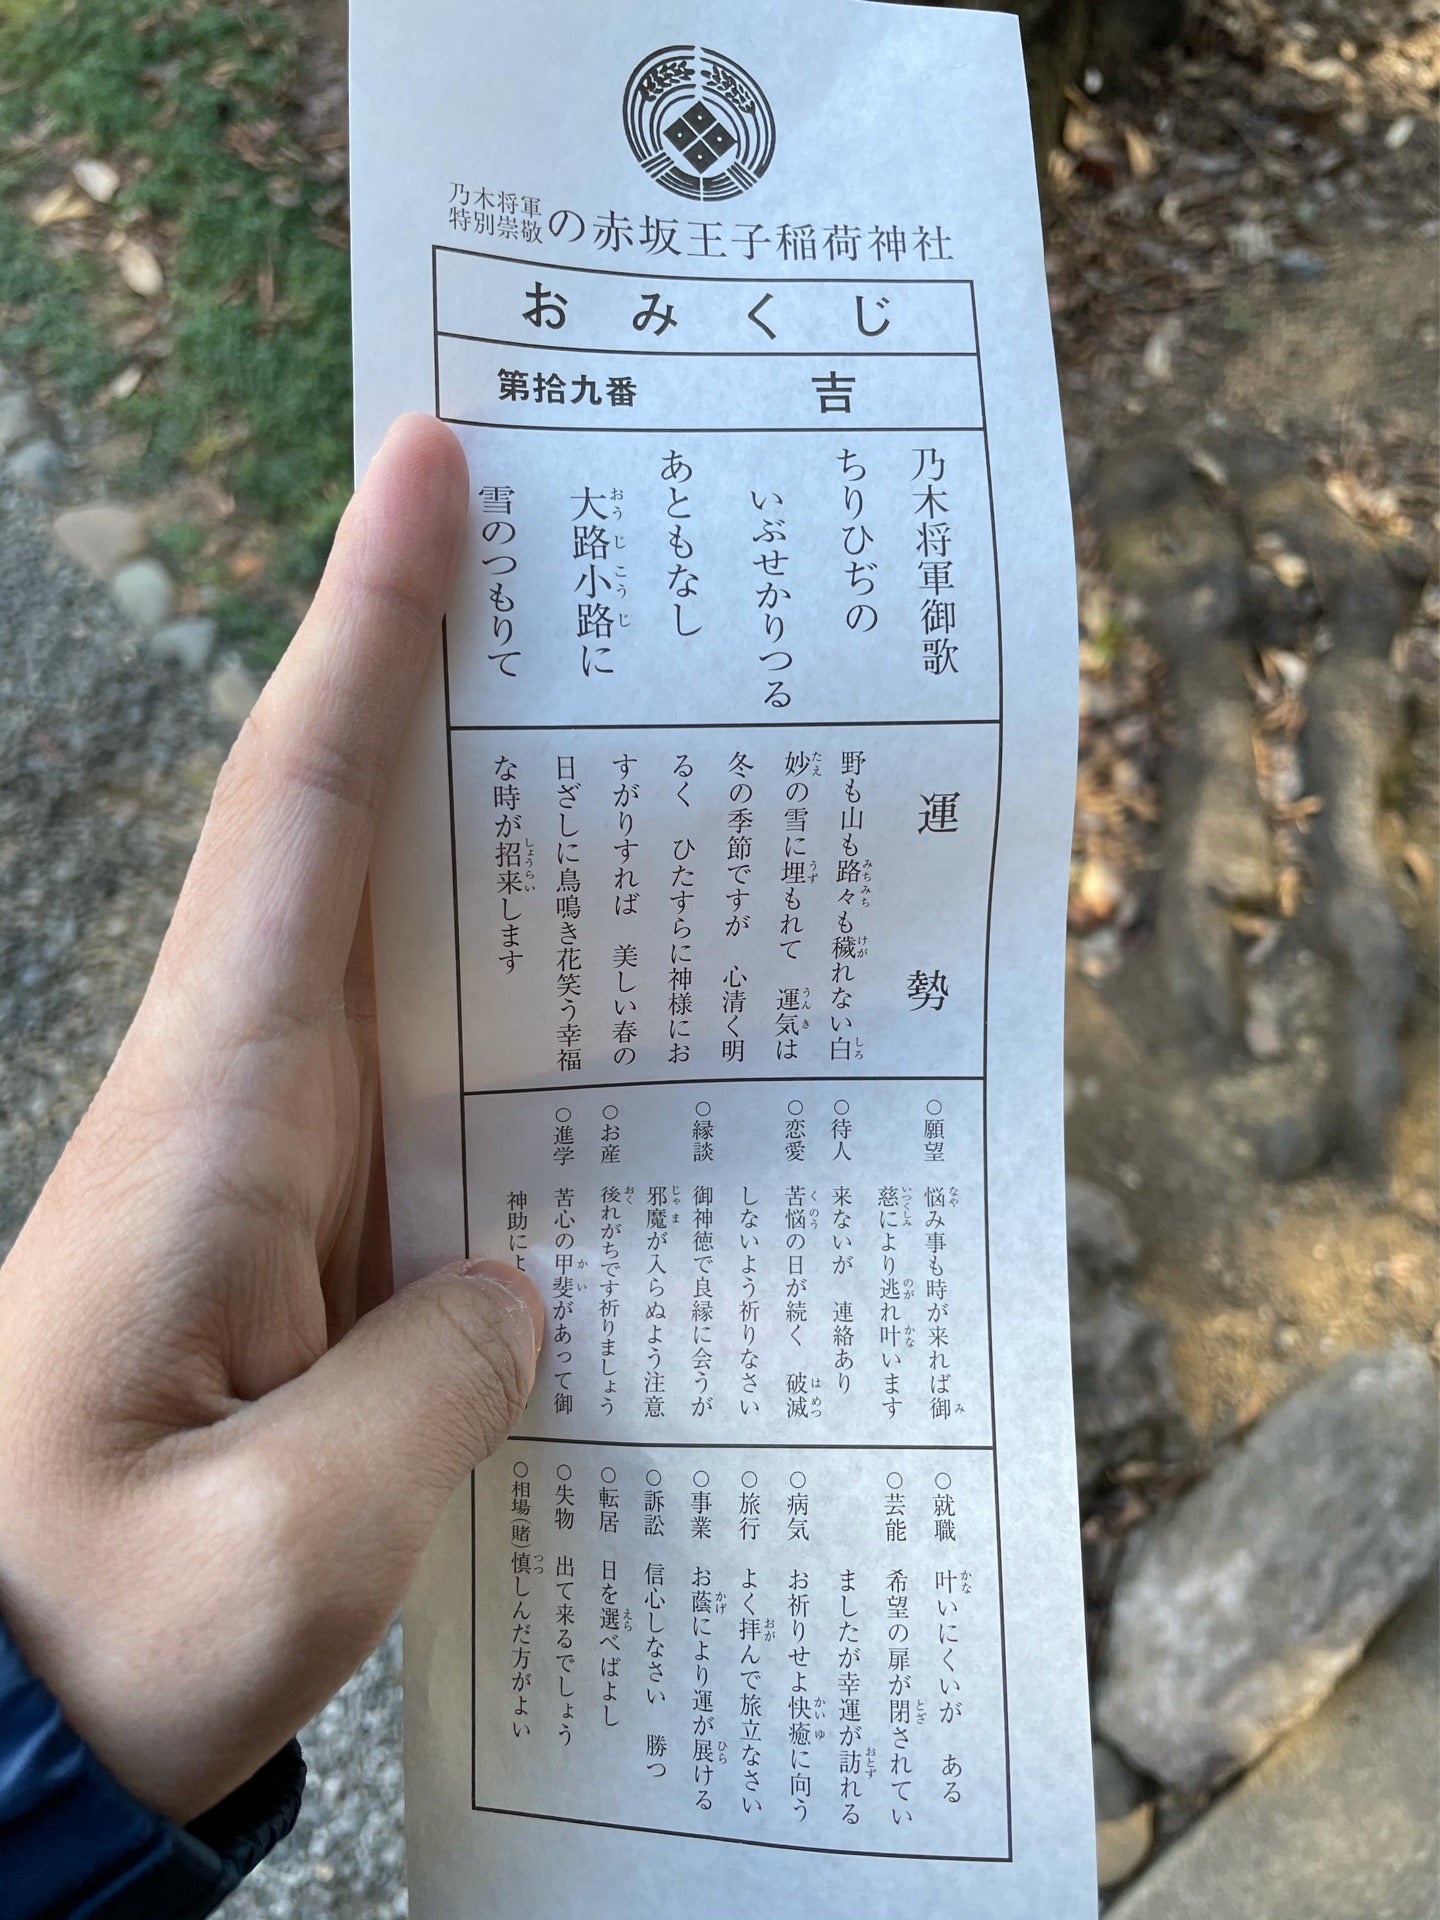 乃木将軍
特別崇敬
の赤坂王子稲荷神社
おみくじ
第拾九番 吉
乃木将軍御歌
ちりひぢの
いぶせかりつる
あともなし
大路小路に
おうじこうじ
雪のつもりて
運勢
野も山も路々も穢れない白
みちみち けが しろ
妙の雪に埋もれて 運気は
たえ うず うんき
冬の季節ですが 心清く明
るく ひたすらに神様にお
すがりすれば 美しい春の
日ざしに鳥鳴き花笑う幸福
な時が招来します
しょうらい
○願望 悩み事も時が来れば御
なや み
慈により逃れ叶います
いつくしみ のが かな
○待人 来ないが 連絡あり
○恋愛 苦悩の日が続く 破滅
くのう はめつ
しないよう祈りなさい
○縁談 御神徳で良縁に会うが
邪魔が入らぬよう注意
じゃま
○お産 後れがちです祈りましょう
おく
○進学 苦心の甲斐があって御
かい
神助によ
○就職 叶いにくいが ある
かな
○芸能 希望の扉が閉されてい
とざ
ましたが幸運が訪れる
おとず
○病気 お祈りせよ快癒に向う
かいゆ
○旅行 よく拝んで旅立なさい
おが
○事業 お蔭により運が展ける
かげ ひら
○訴訟 信心しなさい 勝つ
○転居 日を選べばよし
えら
○失物 出て来るでしょう
○相場(賭)慎しんだ方がよい
つつ